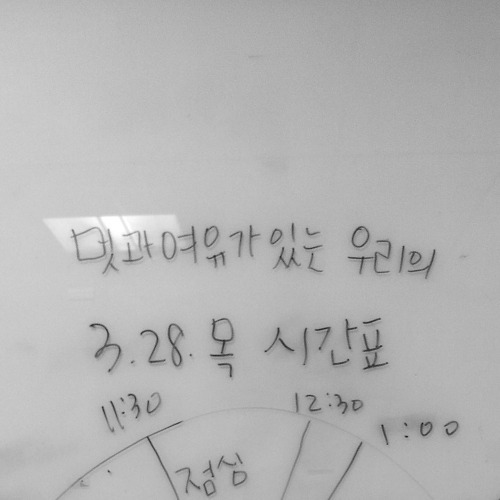 멋과 여유가 있는 우리의
3.28. 목 시간표
11:30 12:30 1:00
점심